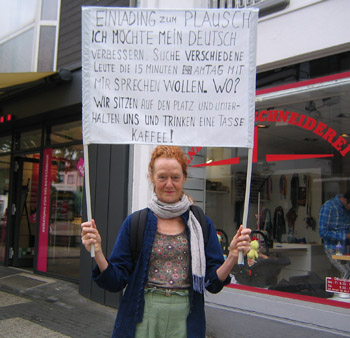 EINLADUNG ZUM PLAUSCH
ICH MÖCHTE MEIN DEUTSCH
VERBESSERN. SUCHE VERSCHIEDENE
LEUTE DIE 15 MINUTEN AM TAG MIT
MIR SPRECHEN WOLLEN. WO?
WIR SITZEN AUF DEN PLATZ UND UNTER-
HALTEN UNS UND TRINKEN EINE TASSE
KAFFEE!
SCHNEIDEREI